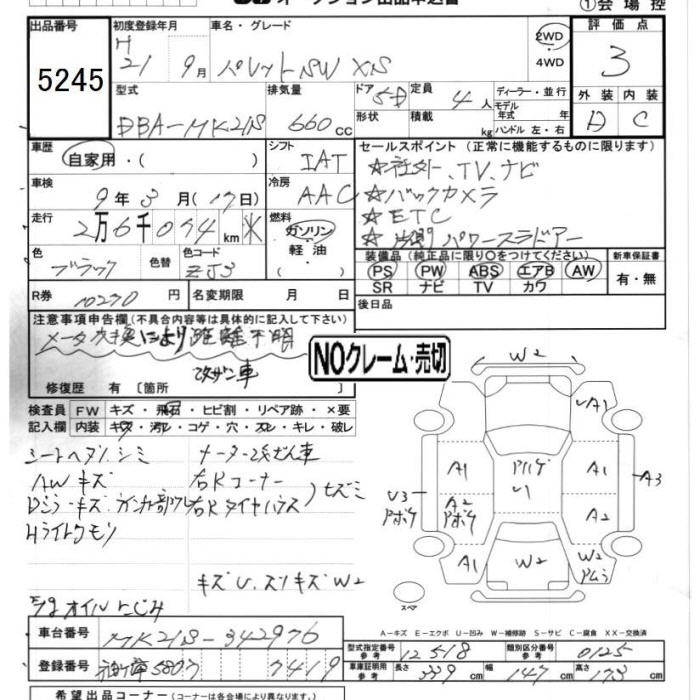 ①会場控
出品番号
5245
初度登録年月
H
21 9月
車名・グレード
パレットSW XS
2WD
・
4WD
評価点
3
型式
DBA-MK21S
排気量
660cc
ドア 5D
形状
定員
4人
積載 kg
ディーラー・並行
モデル
年式 年
ハンドル 左・右
外装 内装
D C
車歴
自家用・( )
シフト
IAT
セールスポイント (正常に機能するものに限ります)
☆社外、TV、ナビ
☆バックカメラ
☆ETC
パワースラドアー
車検
9年3月(17日)
冷房
AAC
走行
2万6千074km
燃料
ガソリン
・
軽・油
色
ブラック
色替
色コード
ZJ3
装備品 (純正品に限り○をつけてください)
PS PW ABS エアB AW
SR ナビ TV カワ
新車保証書
有・無
R券 10270円
名変期限 月 日
後日品
注意事項申告欄(不具合内容等は具体的に記入して下さい)
メータ交換により距離不明
改ザン車
NOクレーム・売切
修復歴 有 〔箇所
検査員
記入欄
FW キズ・飛石・ヒビ割・リペア跡・×要
内装 キズ・汚レ・コゲ・穴・スレ・キレ・破レ
シートヘタリ、シミ
メーター改ざん車
AWキズ
右Rコーナー
右Rタイヤハウス
ヒズミ
Hライトクモリ
キズU.スリキズW2
オイルにじみ
W2
A1
A1
A1
A3
U3
A2
A2
A1
W2
W2
U1
スペア
A−キズ E−エクボ U−凹み W−補修跡 S−サビ C−腐食 XX−交換済
車台番号 MK21S-342976
型式指定番号
参考
12518
類別区分番号
参考
0125
登録番号 580 7419
車庫証明用
参考
長さ 339cm 幅 147cm 高さ 173cm
希望出品コーナー(コーナーは各会場により異なります)